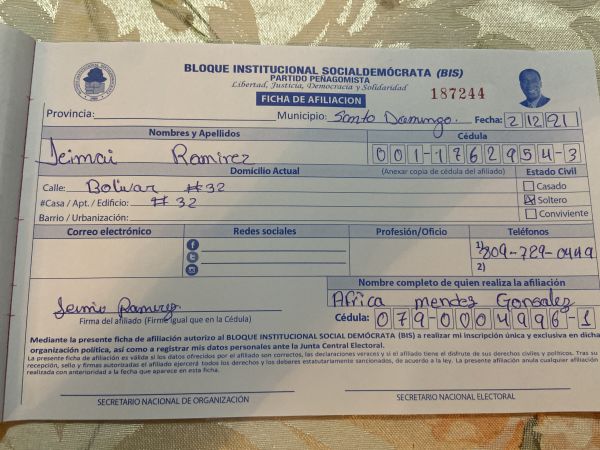 BLOQUE INSTITUCIONAL SOCIALDEMÓCRATA (BIS)
PARTIDO PEÑAGOMISTA
Libertad, Justicia, Democracia y Solidaridad
FICHA DE AFILIACION
187244
Provincia: Municipio: Santo Domingo. Fecha: 2 12 21
Nombres y Apellidos Cédula
Deimai Ramirez 001-1762954-3
Domicilio Actual (Anexar copia de cédula del afiliado) Estado Civil
Calle: Bolivar #32 Casado
#Casa / Apt. / Edificio: #32 Soltero
Barrio / Urbanización: Conviviente
Correo electrónico Redes sociales Profesión/Oficio Teléfonos
1) 809-729-0449
2)
Nombre completo de quien realiza la afiliación
Africa mendes Gonzalez
Ramirez
Firma del afiliado (Firme igual que en la Cédula) Cédula: 079-0004996-1
Mediante la presente ficha de afiliación autorizo al BLOQUE INSTITUCIONAL SOCIAL DEMÓCRATA (BIS) a realizar mi inscripción única y exclusiva en dicha
organización política, así como a registrar mis datos personales ante la Junta Central Electoral.
La presente ficha de afiliación es válida si los datos ofrecidos por el afiliado son correctos, las declaraciones veraces y si el afiliado tiene el disfrute de sus derechos civiles y políticos. Tras su
recepción, sello y firmas autorizadas el afiliado ejercerá todos los derechos y los deberes estatutariamente sancionados, de acuerdo a la ley. La presente afiliación anula cualquier afiliación
realizada con anterioridad a la fecha que aparece en esta ficha.
SECRETARIO NACIONAL DE ORGANIZACIÓN SECRETARIO NACIONAL ELECTORAL